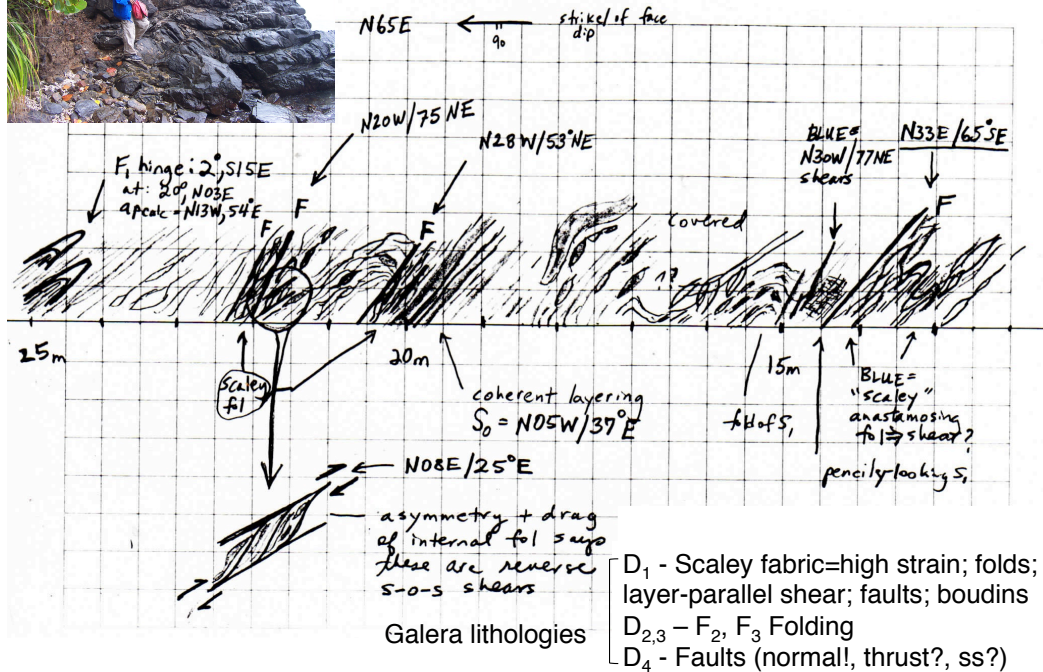 N65E
strike/of face
dip
90
N20W/75NE
N28W/53°NE
BLUE=
N30W/77NE
shears
N33E/65°SE
F₁ hinge: 2°, S15E
at: 20°, N03E
apeak = N13W, 54°E
F
F
F
F
covered
25m
20m
15m
scaley
fol
coherent layering
S₀ = N05W/37°E
fold of S₁
BLUE=
"scaley"
anastamosing
fol ⇒ shear?
pencily-looking S₁
N08E/25°E
asymmetry + drag
of internal fol says
these are reverse
s-o-s shears
Galera lithologies
D₁ - Scaley fabric=high strain; folds;
layer-parallel shear; faults; boudins
D₂,₃ – F₂, F₃ Folding
D₄ - Faults (normal!, thrust?, ss?)